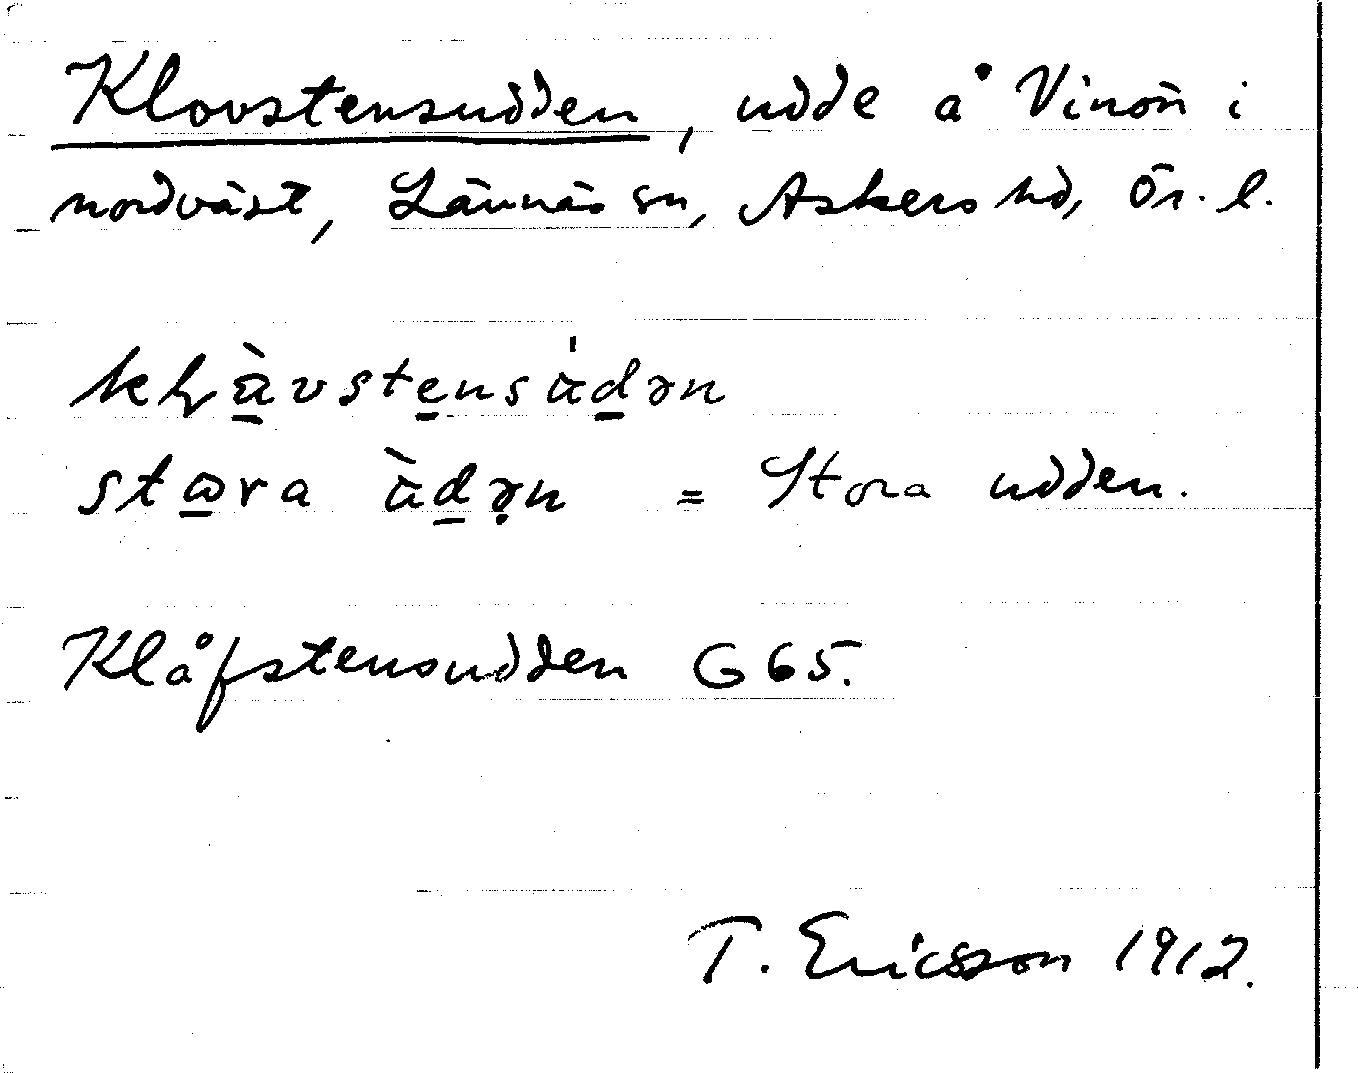 Klovstensudden, udde å Vinön i
nordväst, Lännäs sn, Askers hd, Ör. l.
stɷra ùdən = Stora udden.
Klåfstensudden G65.
T. Ericsson 1912.